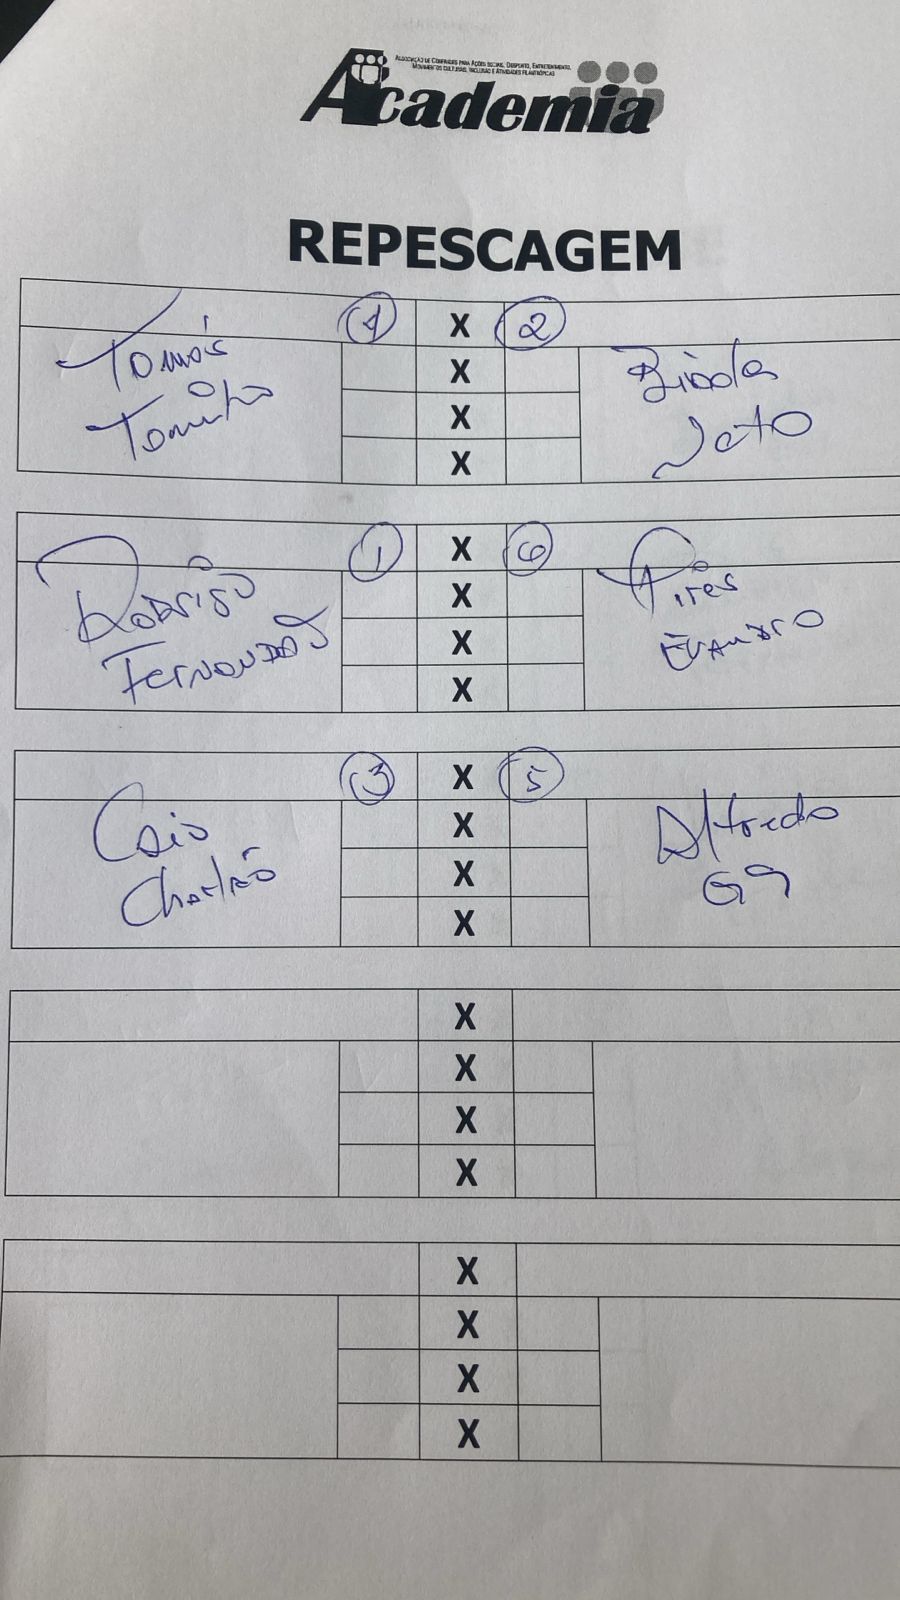 ASSOCIAÇÃO DE CONFRADES PARA AÇÕES SOCIAIS, DESPORTO, ENTRETENIMENTO,
MOVIMENTOS CULTURAIS, INCLUSÃO E ATIVIDADES FILANTRÓPICAS
Academia
REPESCAGEM
X 2
Tomás X
Toninho X
X Jato
1 X 6
Rodrigo X Pires
Fernandas X Evandro
X
3 X 5
Caio X Alfredo
Charlão X G9
X
X
X
X
X
X
X
X
X